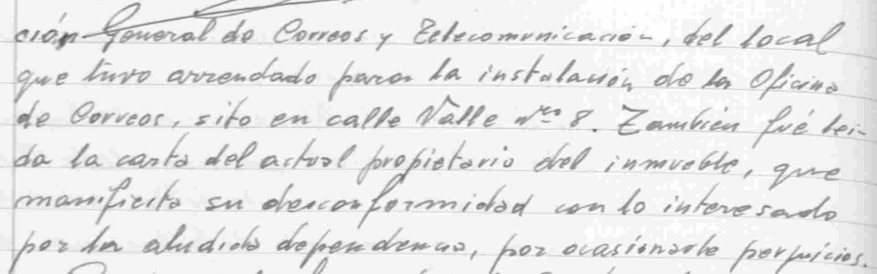 ción General de Correos y Telecomunicación, del local
que tuvo arrendado para la instalación de la Oficina
de Correos, sito en calle Valle nro 8. También fué lei-
da la carta del actual propietario del inmueble, que
manificita su desconformidad con lo interesado
por la aludida dependencia, por ocasionarle perjuicios.